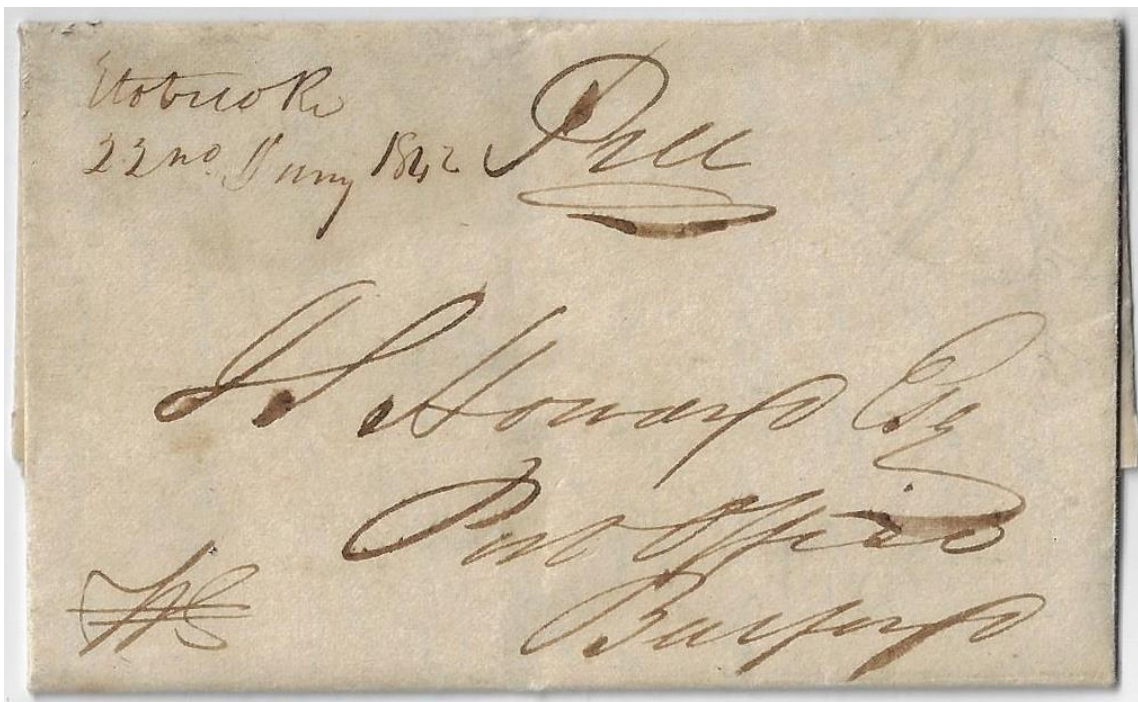 Etobicoke
22nd Jany 1842 Free
J S Howard Esq
Post Office
Burford